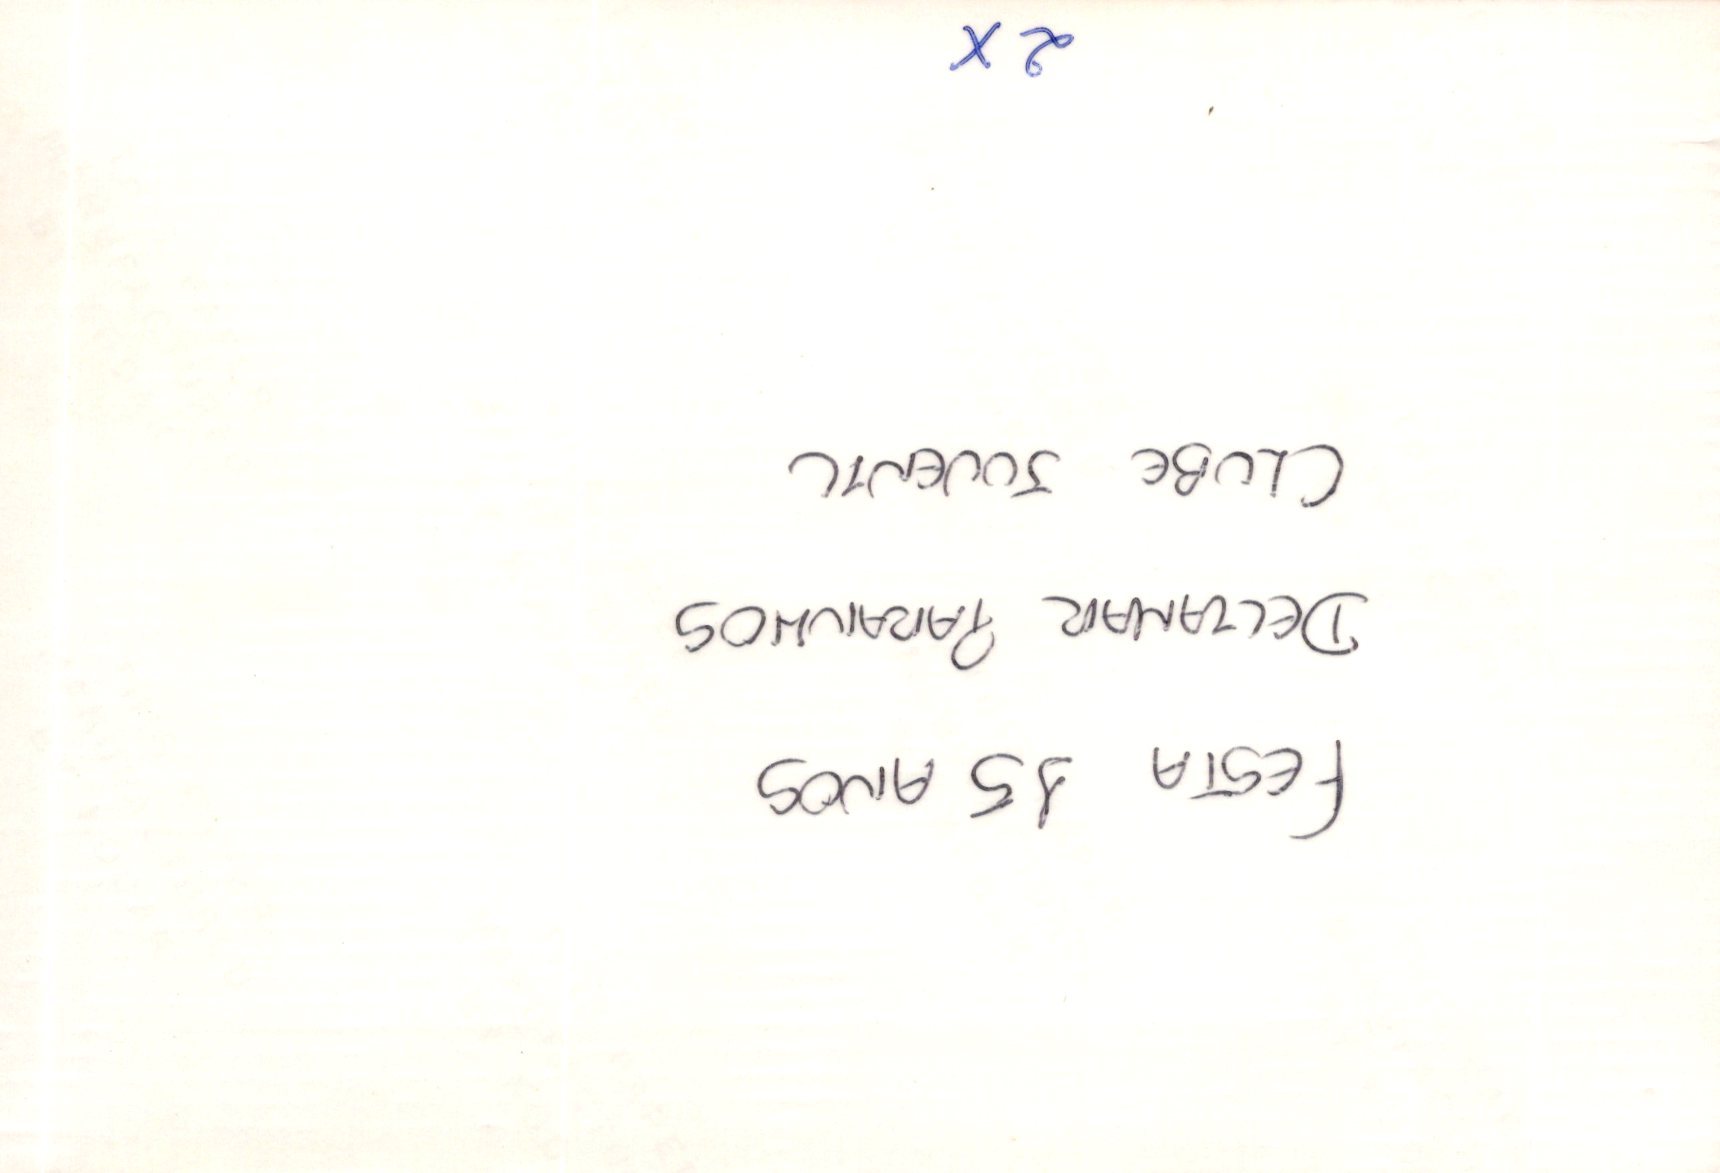 FESTA 15 ANOS
DELZAMAR PARANHOS
CLUBE JUVENIL
2X